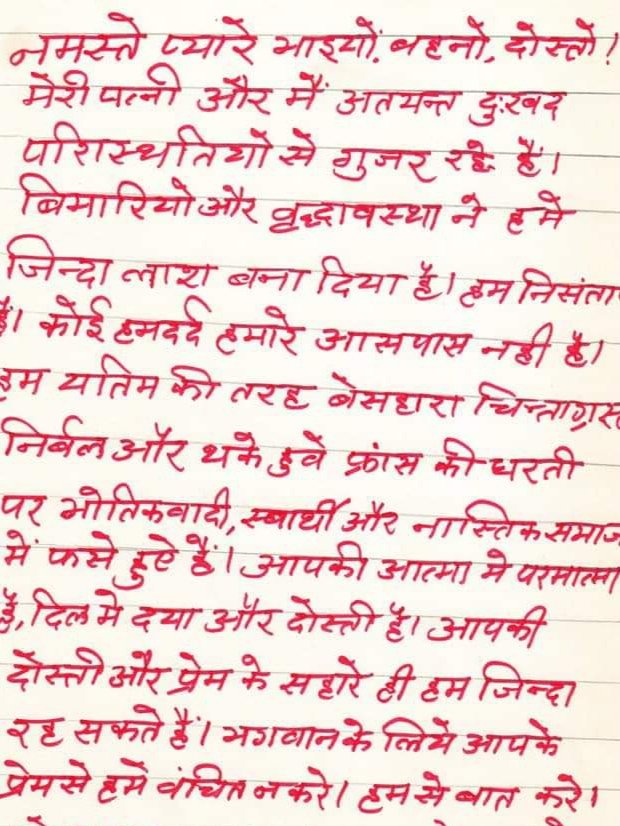 नमस्ते प्यारे भाइयों, बहनो, दोस्तो!
मेरी पत्नी और मैं अतयन्त दुःखद
परिास्थतियों से गुजर रहे हैं।
बिमारियो और वृद्धावस्था ने हमे
जिन्दा लाश बना दिया है। हम निसंता
हैं। कोई हमदर्द हमारे आसपास नही है।
हम यतिम की तरह बेसहारा चिन्ताग्रस्त
निर्बल और थके हुवे फ्रांस की धरती
पर भोतिकवादी, स्वार्थी और नास्तिक समाज
में फसे हुऐ हैं। आपकी आत्मा मे परमात्मा
है, दिल मे दया और दोस्ती है। आपकी
दोस्ती और प्रेम के सहारे ही हम जिन्दा
रह सकते हैं। भगवान के लिये आपके
प्रेम से हमें वंचित न करे। हम से बात करे।